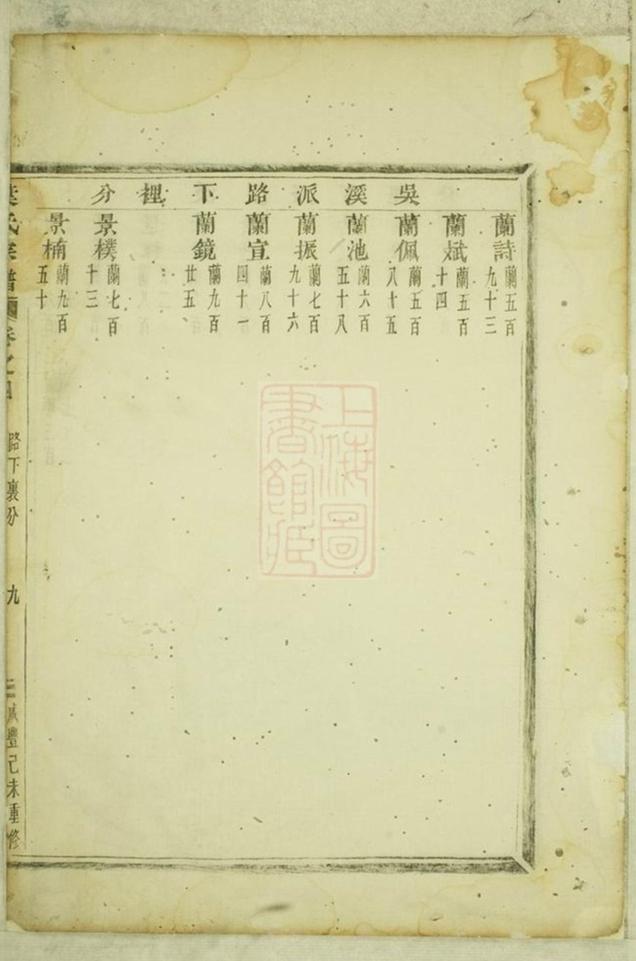 吳溪派路下裡分
蘭詩 蘭五百九十三
蘭斌 蘭五百十四
蘭佩 蘭五百八十五
蘭池 蘭六百五十八
蘭振 蘭七百九十六
蘭宣 蘭八百四十一
蘭鏡 蘭九百廿五
景樸 蘭七百十三
景楠 蘭九百五十
氏宗譜 卷之四 路下裏分 九 咸豐己未重修
上海圖書館藏